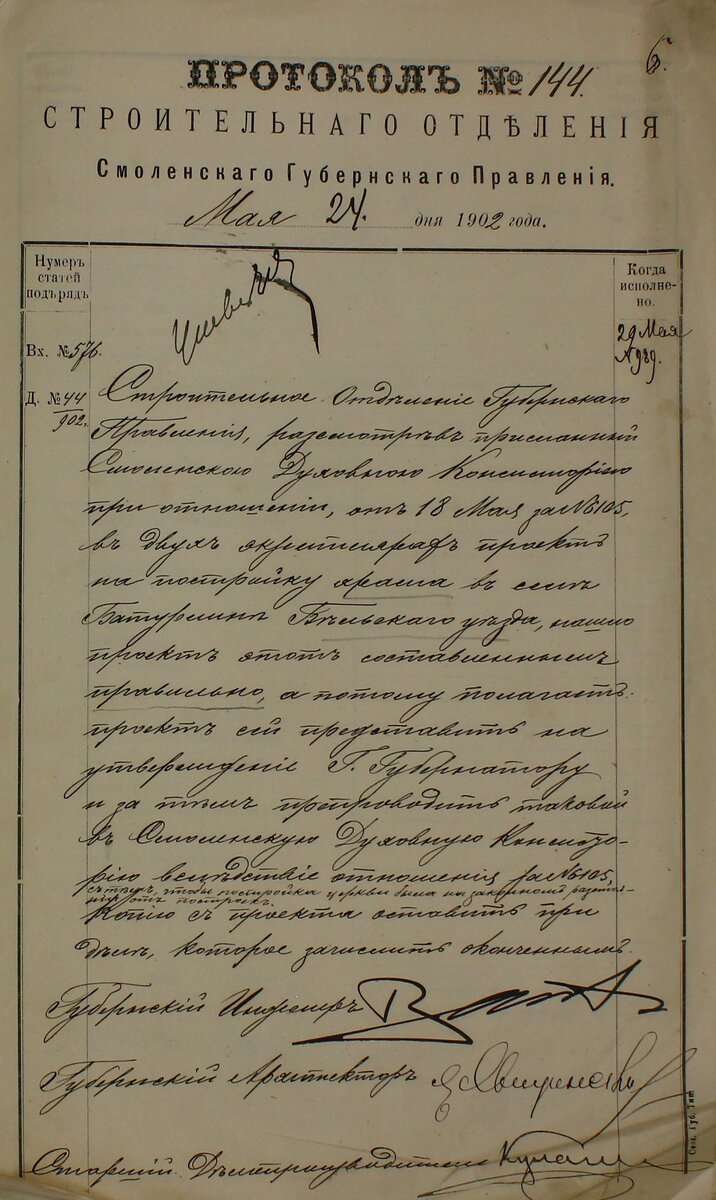 6.
ПРОТОКОЛЪ № 144.
СТРОИТЕЛЬНАГО ОТДѢЛЕНІЯ
Смоленскаго Губернскаго Правленія.
Мая 24. дня 1902 года.
Нумеръ
статей
подърядъ
Когда
исполне-
но.
29 Мая
№ 989.
Вх. № 576.
Д. № 44
902.
Строительное Отдѣленіе Губернскаго
Правленія, разсмотрѣвъ присланный
Смоленскою Духовною Консисторіею
при отношеніи, отъ 18 Мая за № 6105,
въ двухъ экземплярахъ проектъ
на постройку храма въ селѣ
Батуринѣ Бѣльскаго уѣзда, нашло
проектъ этотъ составленнымъ
правильно, а потому полагаетъ:
проектъ сей представить на
утвержденіе Г. Губернатору
и за тѣмъ препроводить таковой
въ Смоленскую Духовную Консисто-
рію вслѣдствіе отношенія за № 6105,
съ тѣмъ, чтобы постройка церкви была на законномъ разстоя-
ніи отъ построекъ.
Копію съ проекта оставить при
дѣлѣ, которое зачислить оконченнымъ.
Губернскій Инженеръ
Губернскій Архитекторъ
Старшій Дѣлопроизводитель
Смол. Губ. Тип.